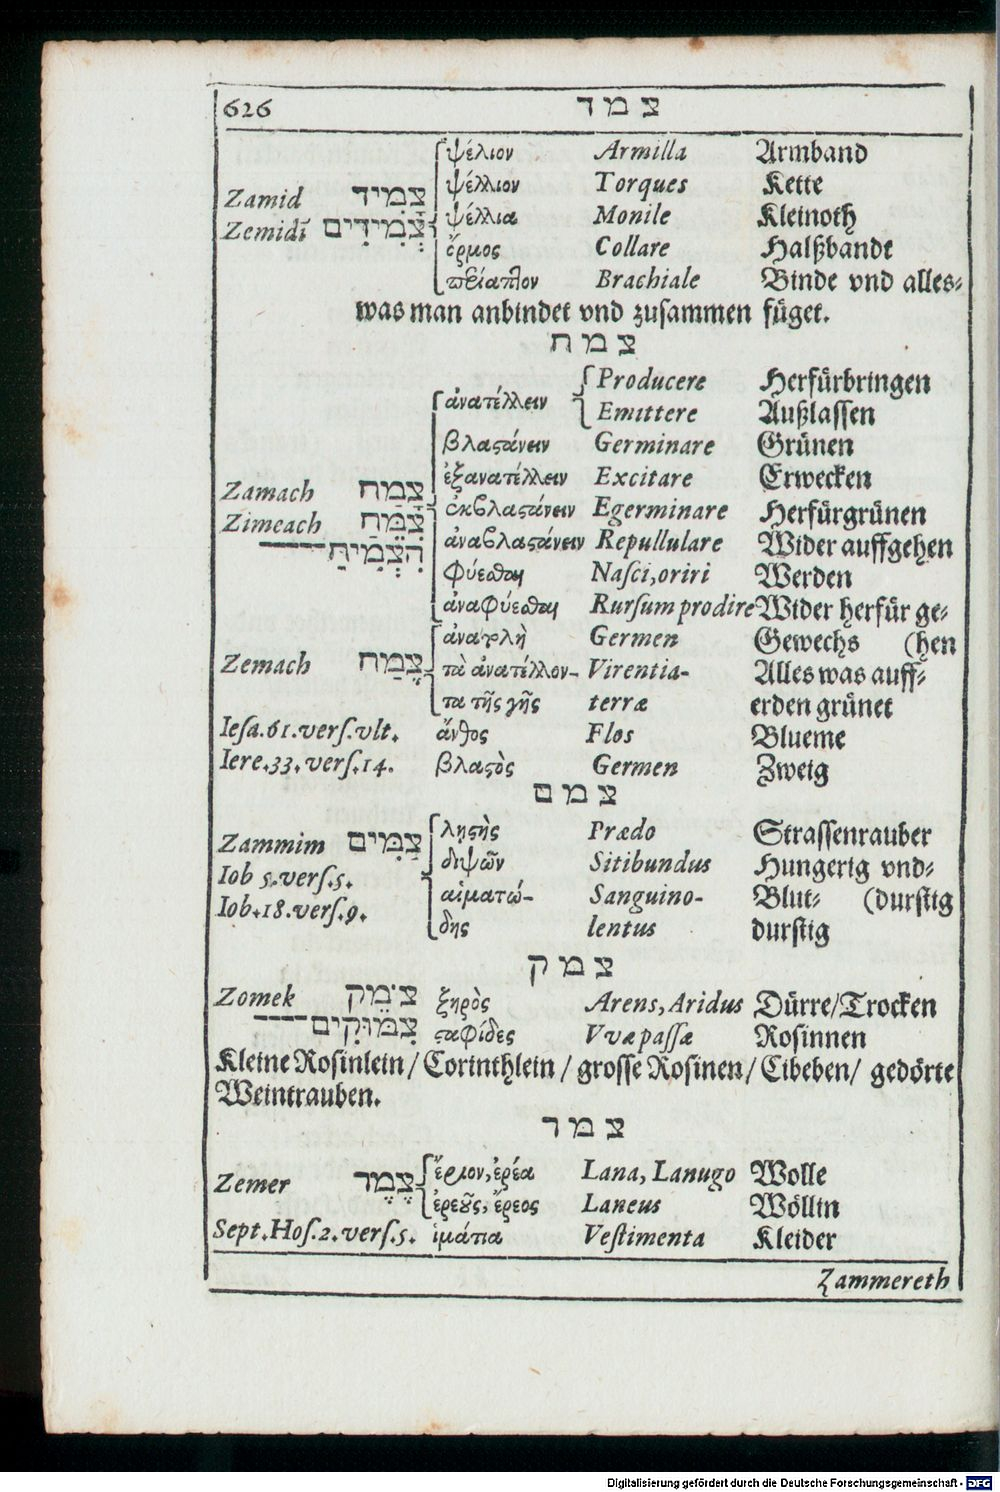 626 צמד
ψέλιον Armilla Armband
Zamid צָמִיד ψέλλιον Torques Kette
Zemidĩ צְמִידִים ψέλλια Monile Kleinoth
ὅρμος Collare Halßbandt
Brachiale Binde vnd alles⸗
was man anbindet vnd zusammen füget.
צמח
ἀνατέλλειν Producere Herfürbringen
Emittere Außlassen
βλαϛάνειν Germinare Grünen
Zamach צָמַח ἐξανατέλλειν Excitare Erwecken
Zimeach צִמֵּחַ ἐκβλαϛάνειν Egerminare Herfürgrünen
הִצְמִיחַ ἀναβλαϛάνειν Repullulare Wider auffgehen
φύεσθαι Naſci, oriri Werden
ἀναφύεσθαι Rurſum prodire Wider herfür ge⸗
Germen Gewechs (hen
Zemach צֶמַח τὰ ἀνατέλλον- Virentia- Alles was auff⸗
τα τῆς γῆς terræ erden grünet
Ieſa. 61. verſ. vlt. ἄνθος Flos Blueme
Iere. 33. verſ. 14. βλαϛὸς Germen Zweig
צמם
λῃϛὴς Prædo Strassenrauber
Zammim צַמִּים διψῶν Sitibundus Hungerig vnd⸗
Iob 5. verſ. 5. αἱματώ- Sanguino- Blut⸗ (durstig
Iob. 18. verſ. 9. δης lentus durstig
צמק
Zomek צֹמֵק ξηρὸς Arens, Aridus Dürre/Trocken
צִמּוּקִים ϛαφίδες Vvæ paſſæ Rosinnen
Kleine Rosinlein/ Corinthlein/ grosse Rosinen/ Cibeben/ gedörte
Weintrauben.
צמר
Zemer צֶמֶר ἔριον, ἐρέα Lana, Lanugo Wolle
ἐρεοῦς, ἔρεος Laneus Wöllin
Sept. Hoſ. 2. verſ. 5. ἱμάτια Veſtimenta Kleider
Zammereth
Digitalisierung gefördert durch die Deutsche Forschungsgemeinschaft - DFG